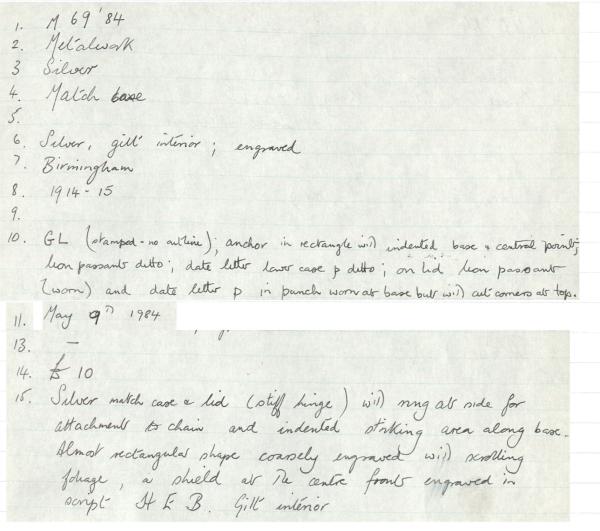 1. M 69 '84
2. Metalwork
3 Silver
4. Match case
5.
6. Silver, gilt interior ; engraved
7. Birmingham
8. 1914-15
9.
10. GL (stamped - no outline); anchor in rectangle with indented base & central point;
lion passant ditto; date letter lower case p ditto; on lid lion passant
(worn) and date letter p in punch worn at base but with cut corners at top.
11. May 9th 1984
13. -
14. £10
15. Silver match case & lid (stiff hinge) with ring at side for
attachment to chain and indented striking area along base.
Almost rectangular shape coarsely engraved with scrolling
foliage, a shield at the centre front engraved in
script H E B. Gilt interior